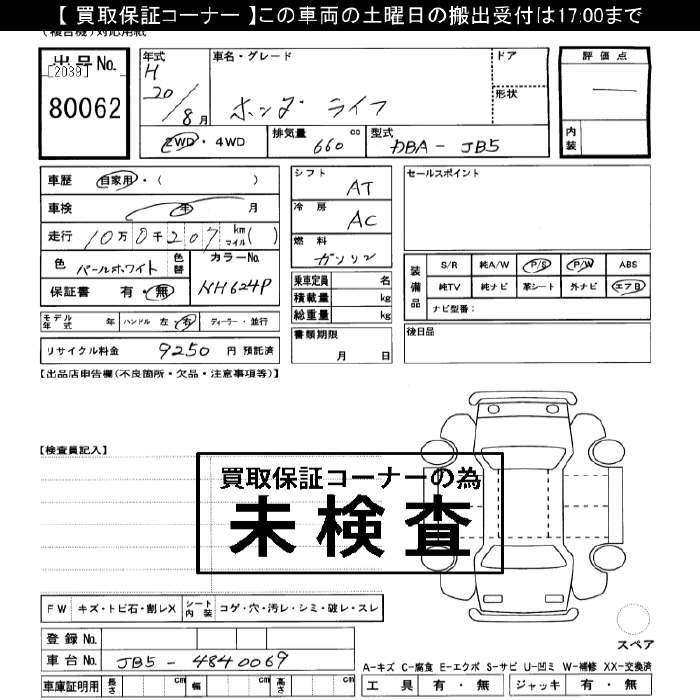 【 買取保証コーナー 】この車両の土曜日の搬出受付は17:00まで
(複合機)対応用紙
出品No.
[2039]
80062
年式
H
20/8月
車名・グレード
ホンダ ライフ
ドア
形状
2WD・4WD
排気量
660 cc
型式
DBA - JB5
評価点
—
内装
車歴 自家用・( )
車検 年 月
走行 10万0千207 km マイル( )
色 パールホワイト 色替
カラーNo.
NH624P
保証書 有・無
シフト
AT
冷房
AC
燃料
ガソリン
乗車定員 名
積載量 kg
総重量 kg
セールスポイント
装備品
S/R 純A/W P/S P/W ABS
純TV 純ナビ 革シート 外ナビ エアB
ナビ型番:
モデル年式 年 ハンドル 左 右 ディーラー・並行
書類期限
月 日
後日品
リサイクル料金 9250 円 預託済
【出品店申告欄(不良箇所・欠品・注意事項等)】
【検査員記入】
買取保証コーナーの為
未検査
FW キズ・トビ石・割レX シート内装 コゲ・穴・汚レ・シミ・破レ・スレ
スペア
登録No.
車台No. JB5 - 4840069
車庫証明用 長さ cm 幅 cm 高さ cm
A-キズ C-腐食 E-エクボ S-サビ U-凹ミ W-補修 XX-交換済
工具 有・無 ジャッキ 有・無